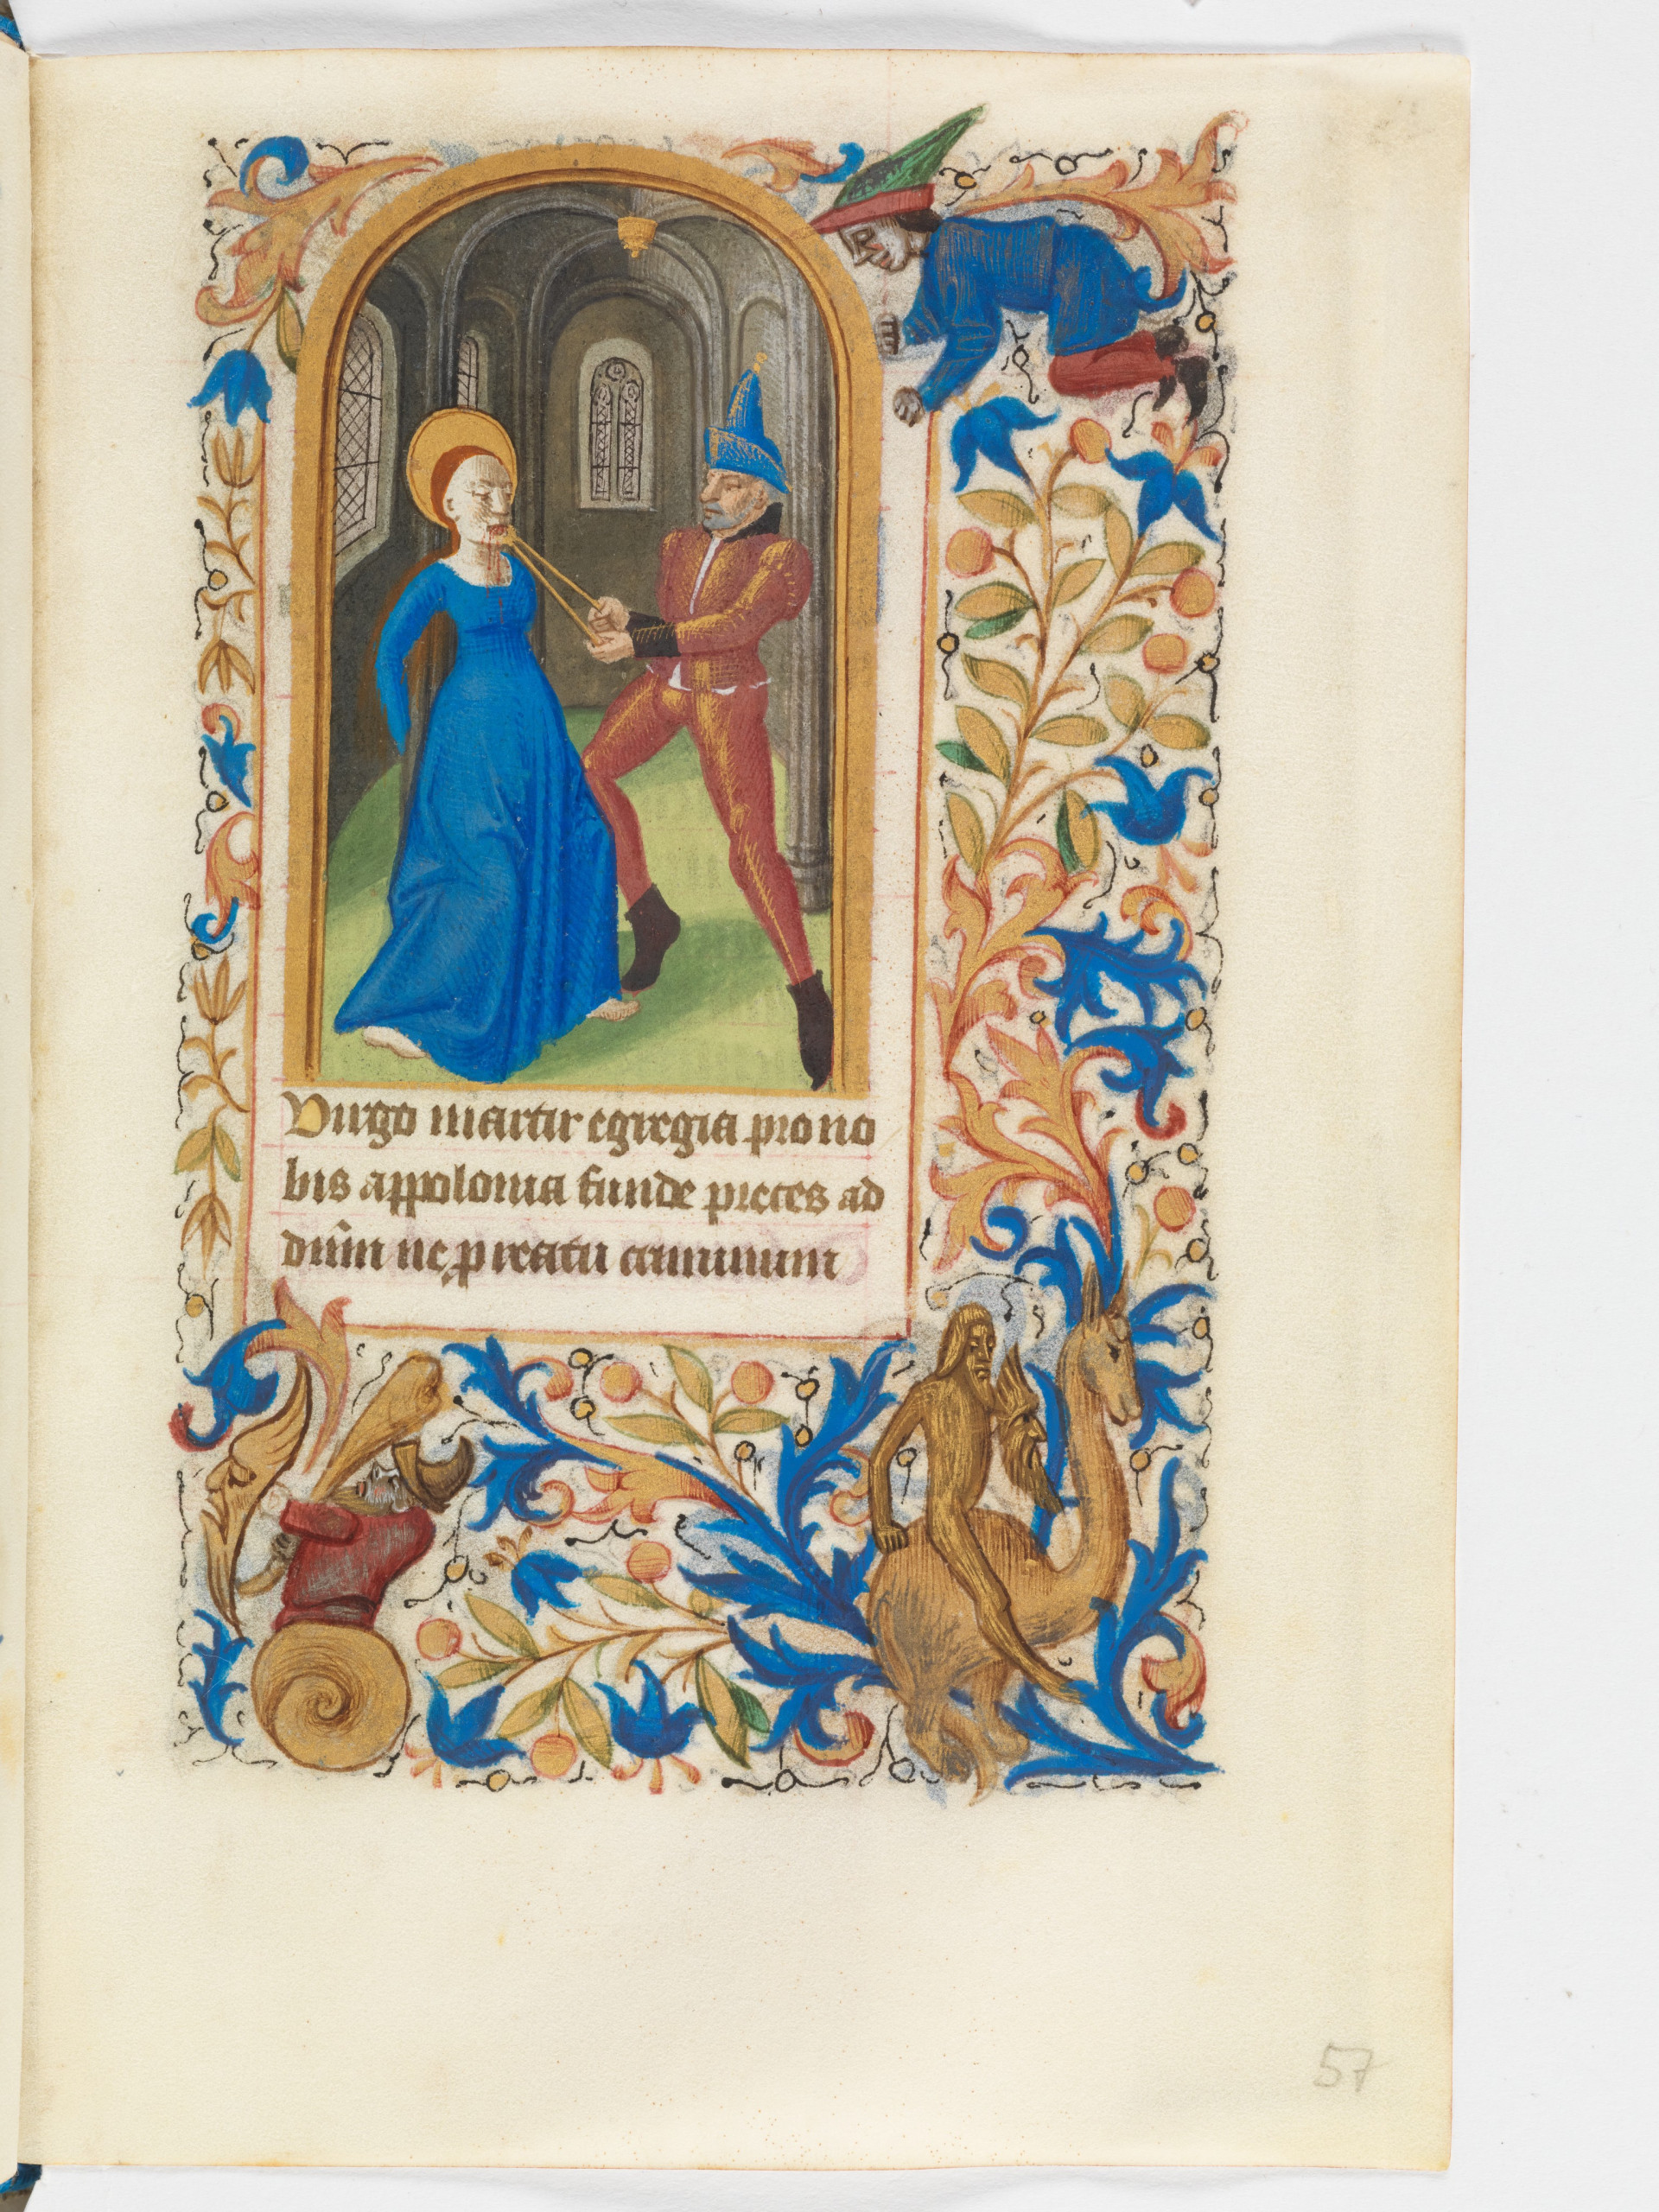 Virgo martir egregia pro no
bis appolonia funde preces ad
dñm ne ꝑ reatu criminum
57